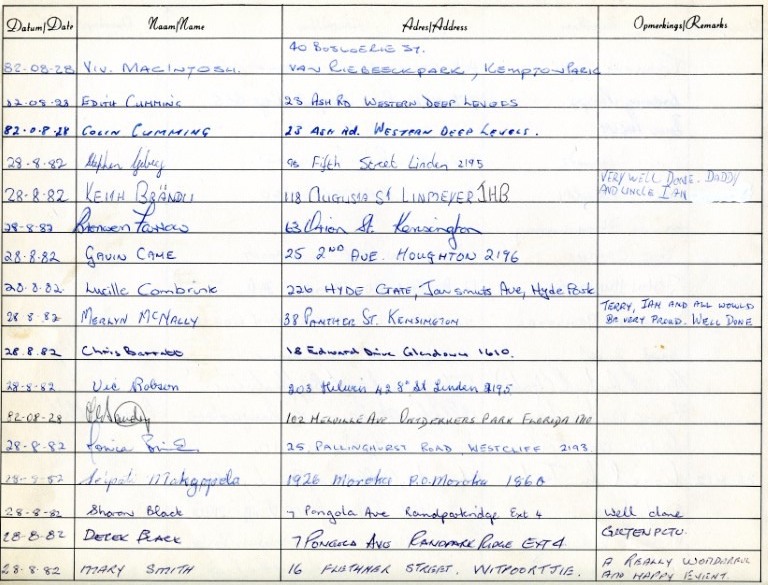 Datum/Date Naam/Name Adres/Address Opmerkings/Remarks
40 ST.
82-08-28 VIV. MACINTOSH. VAN RIEBEECKPARK, KEMPTON PARK
82-08-28 EDITH CUMMING 23 ASH RD WESTERN DEEP LEVELS
82-0.8-28 COLIN CUMMING 23 ASH Rd. WESTERN DEEP LEVELS.
28-8-82 Stephen Fifth Street Linden 2195
VERY WELL DONE. DADDY
28-8-82 KEITH BRÄNDLI 118 AUGUSTA St LINMEYER JHB. AND UNCLE IAN
28-8-82 Farrow 63 Orion St. Kensington
28-8-82 GAVIN CAME 25 2ND AVE. HOUGHTON 2196
28-8-82. Lucille Combrink 226 HYDE GATE, Jan smuts Ave, Hyde Park
TERRY, IAN AND ALL WOULD
28 8.82 MERLYN MCNALLY 38 PANTHER ST. KENSINGTON BE VERY PROUD. WELL DONE
28.8.82 Chris Barratt 18 Edward Drive Glendower 1610.
28-8-82 Vic Robson 203 42 8th St Linden 2195
82-08-28 102 MELVILLE AVE PARK FLORIDA
28-8-82 25 PALLINGHURST ROAD WESTCLIFF 2193
28-8-82 1926 Moroka P.O. Moroka 1860
28-8-82 Sharon Black 7 Pongola Ave Randparkridge Ext 4 Well done
28-8-82 DEREK BLACK 7 PONGOLA AVE RANDPARK RIDGE EXT 4
28.8.82 MARY SMITH 16 STREET. WITPOORTJIE. A REALLY WONDERFUL
AND HAPPY EVENT.